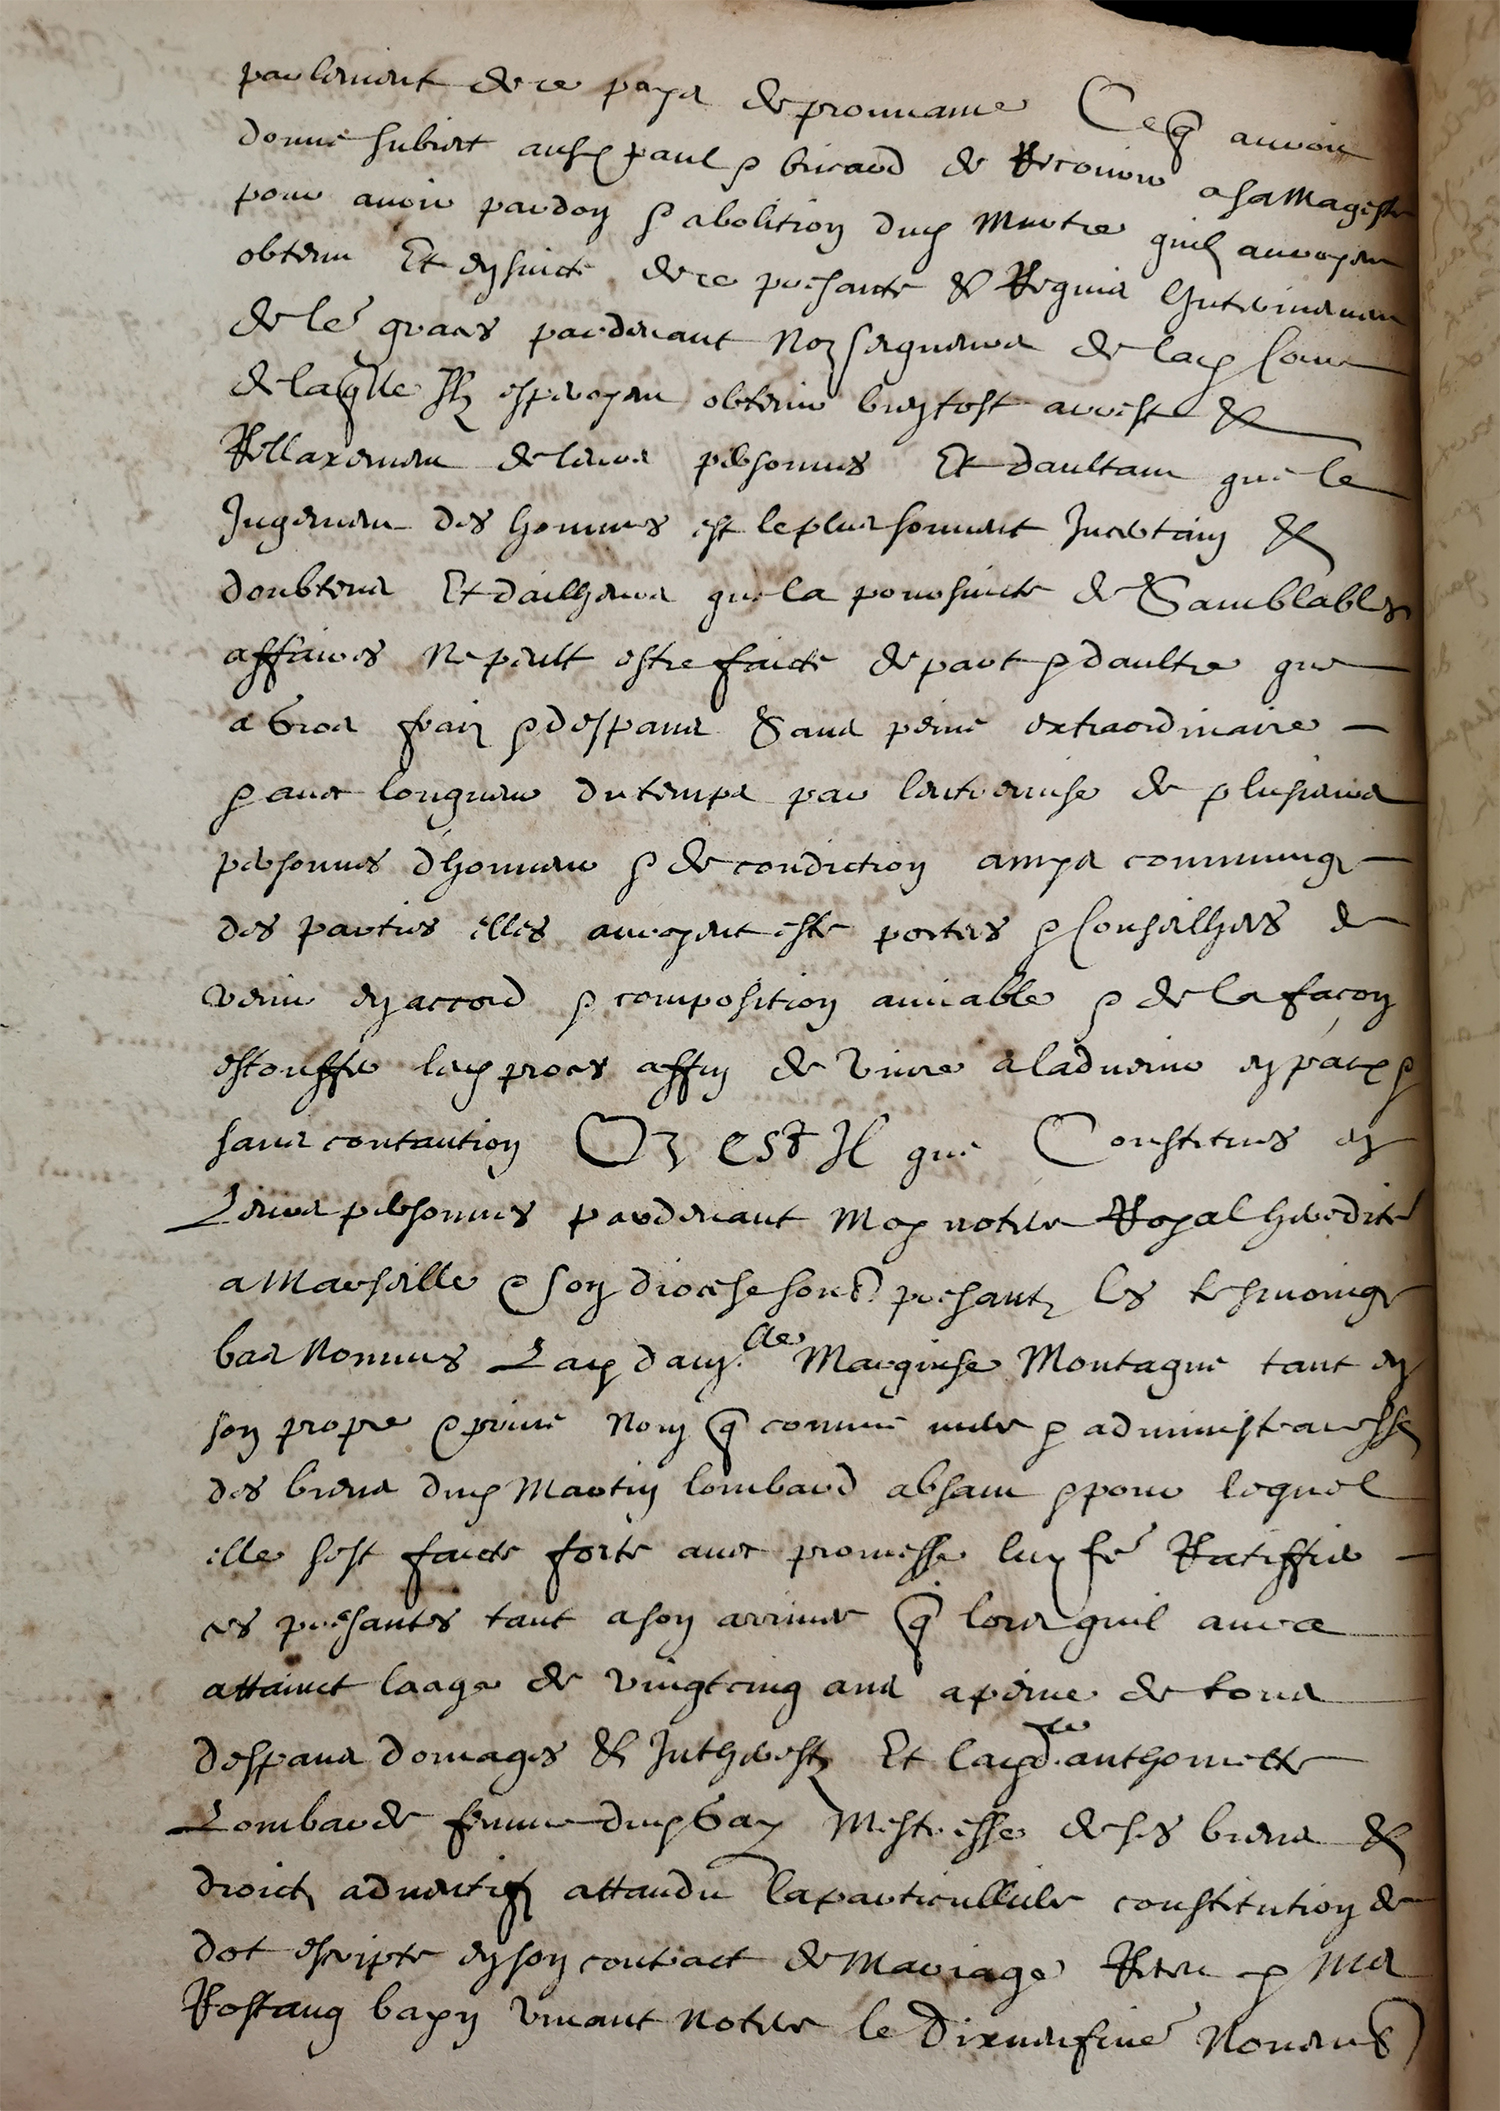 parlement de ce pays de prouvance Ce q̃ auroit
donné subiect ausd paul & giraud de Recourir a sa Magesté
pour avoir pardon & abolition dud Murtre quilz auroyent
obtenu Et ensuicte de ce presanté & Requis lintherinement
de le grace pardevant Nozseigneurs de lad Cour
de laq̃lle Ilz esperoyent obtenir bientost arrest &
Rellaxement de leurs personnes Et daultant que le
Jugement des hommes est le plus souvent Incertain &
doubteus Et dailheurs que la poursuicte de Samblables
affaires Ne peult estre faicte de part & daultre que
a gros fraiz & despans Sans peine extraordinaire
& avec longueur du temps par lentremise de plusieurs
personnes dhonneur & de condiction amys commungs
des parties elles auroyent esté portées & Conseilhées de
venir en accord & composition amiable & de la façon
estouffer led proces affin de vivre a ladvenir en paix &
sans contantion Or est Il que Constitues en
Leurs personnes pardevant Moy notere Royal heredité
a Marseille & son diocese soubz.ne presantz les tesmoingz
bas Nommes Lad dam.lle Marguise Montagne tant en
son propre & privé Nom q̃ comme mere & administraresse
des biens dud Martin lombard absant & pour lequel
elle sest faicte forte avec promesse luy fe Ratiffier
ces presantes tant a son arrivée q̃ lors quil aura
attainct laage de vingtcinq ans a peine de tous
despans domages & Intherestz Et lad d.lle anthonnette
Lombarde femme dud Gay Mestresse de ses biens &
droictz adventifz attandu la particulliere constitution de
dot escripte en son contract de Mariage Receu & Me
Rostang bayn vivant notere le Dixneufme Novemb